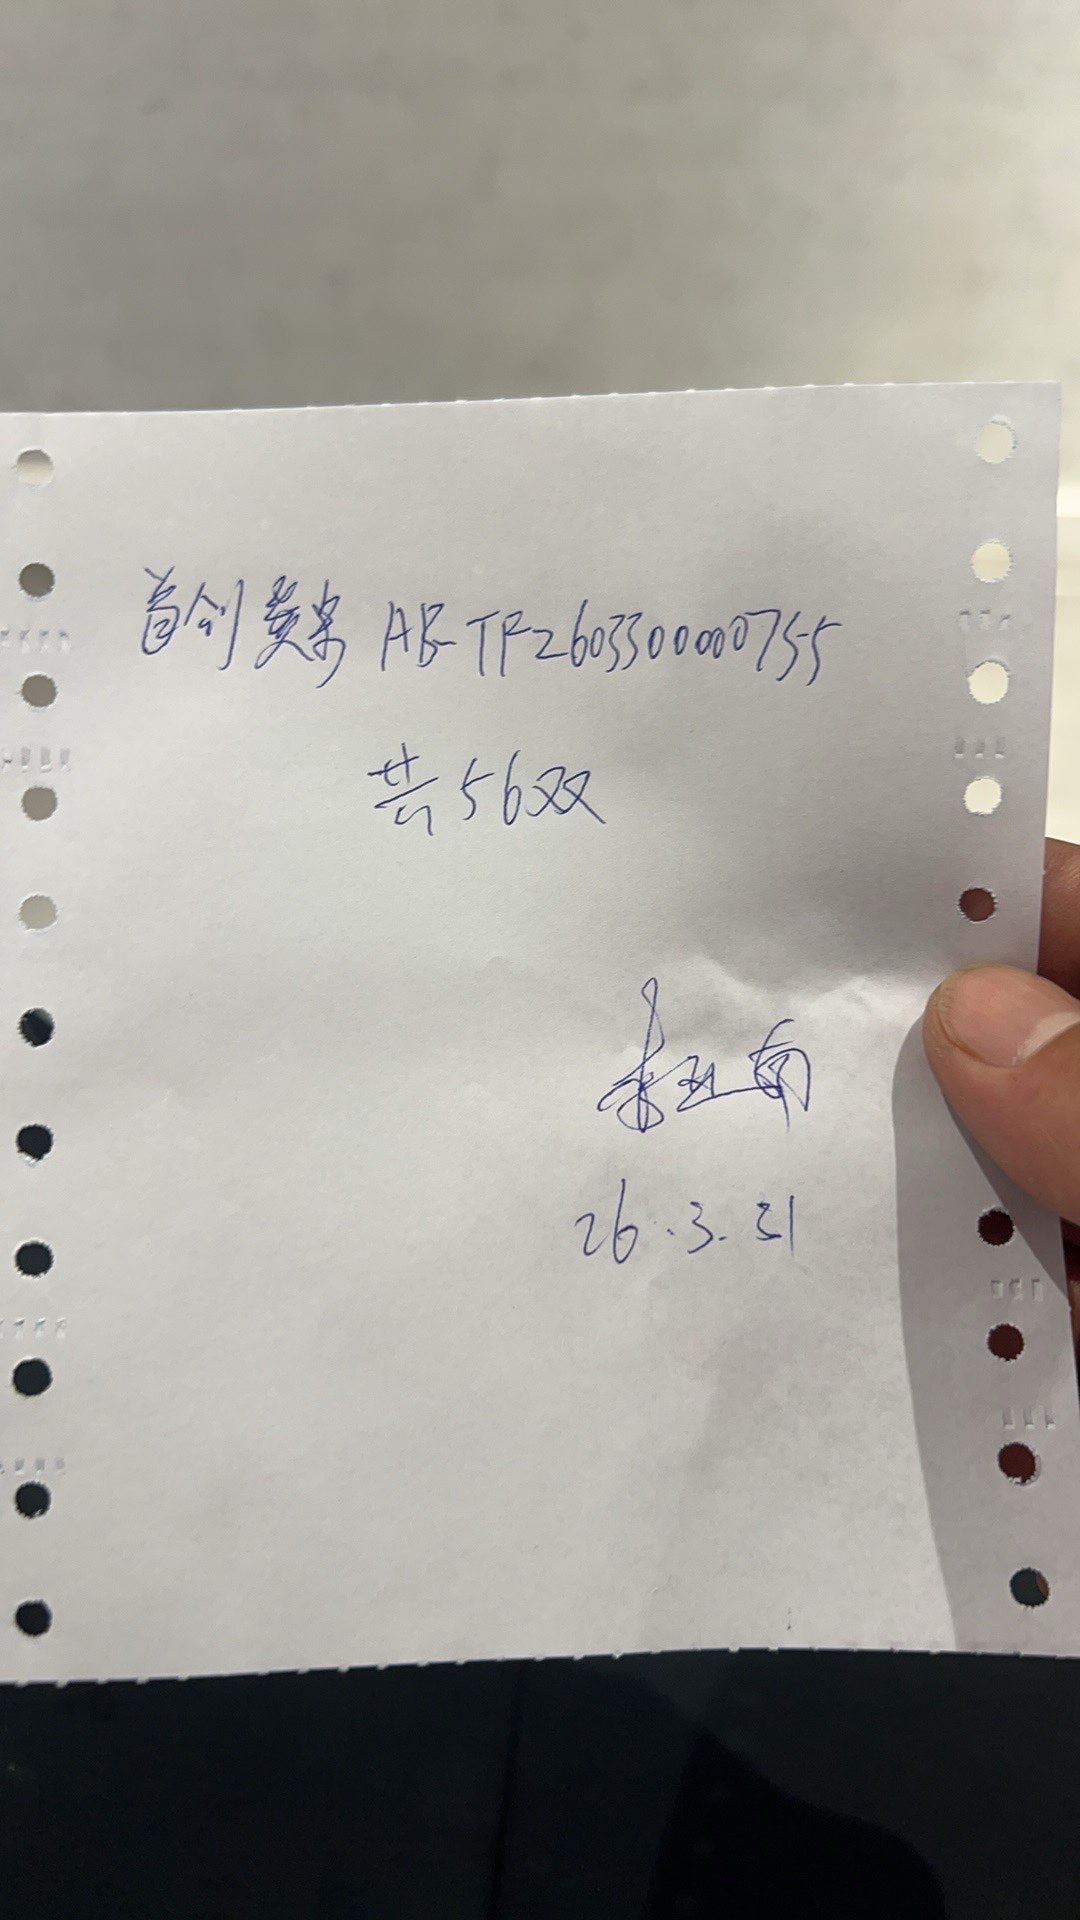 首创奥莱 AB-TF260330000755
共56双
26.3.31